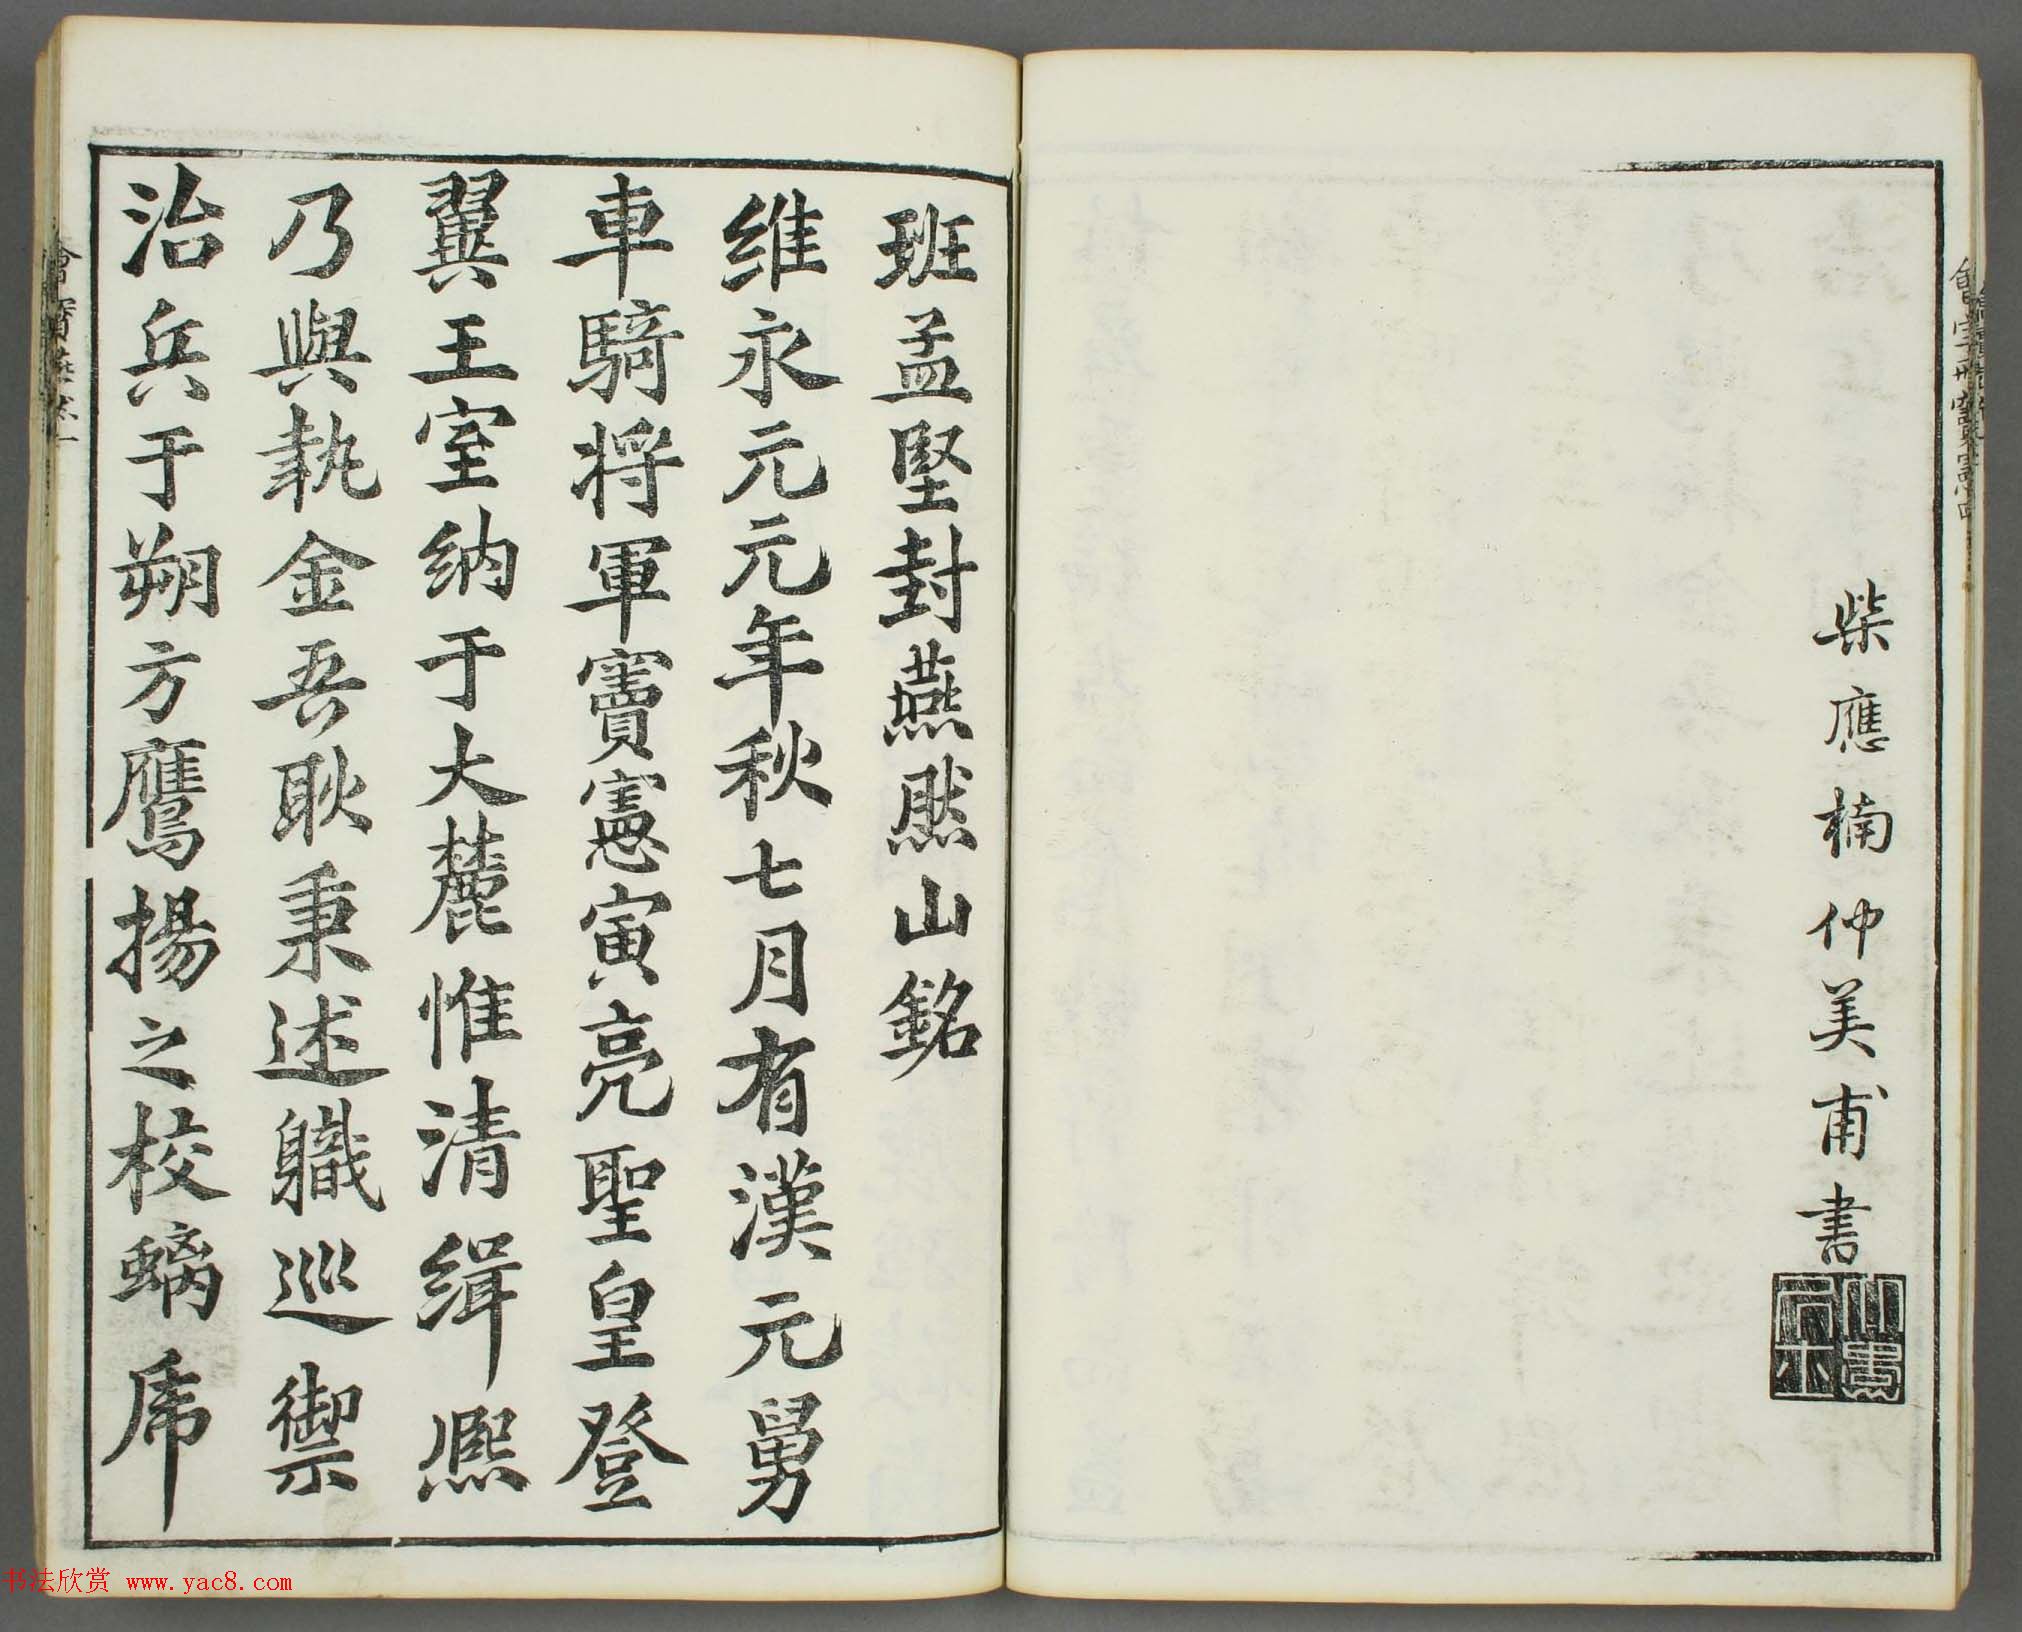 柴應楠仲美甫書
班孟堅封燕然山銘
維永元元年秋七月有漢元舅
車騎将軍竇憲寅亮聖皇登
翼王室納于大麓惟清緝熙
乃與執金吾耿秉述職巡禦
治兵于朔方鷹揚之校螭虎
书法欣赏 www.yac8.com